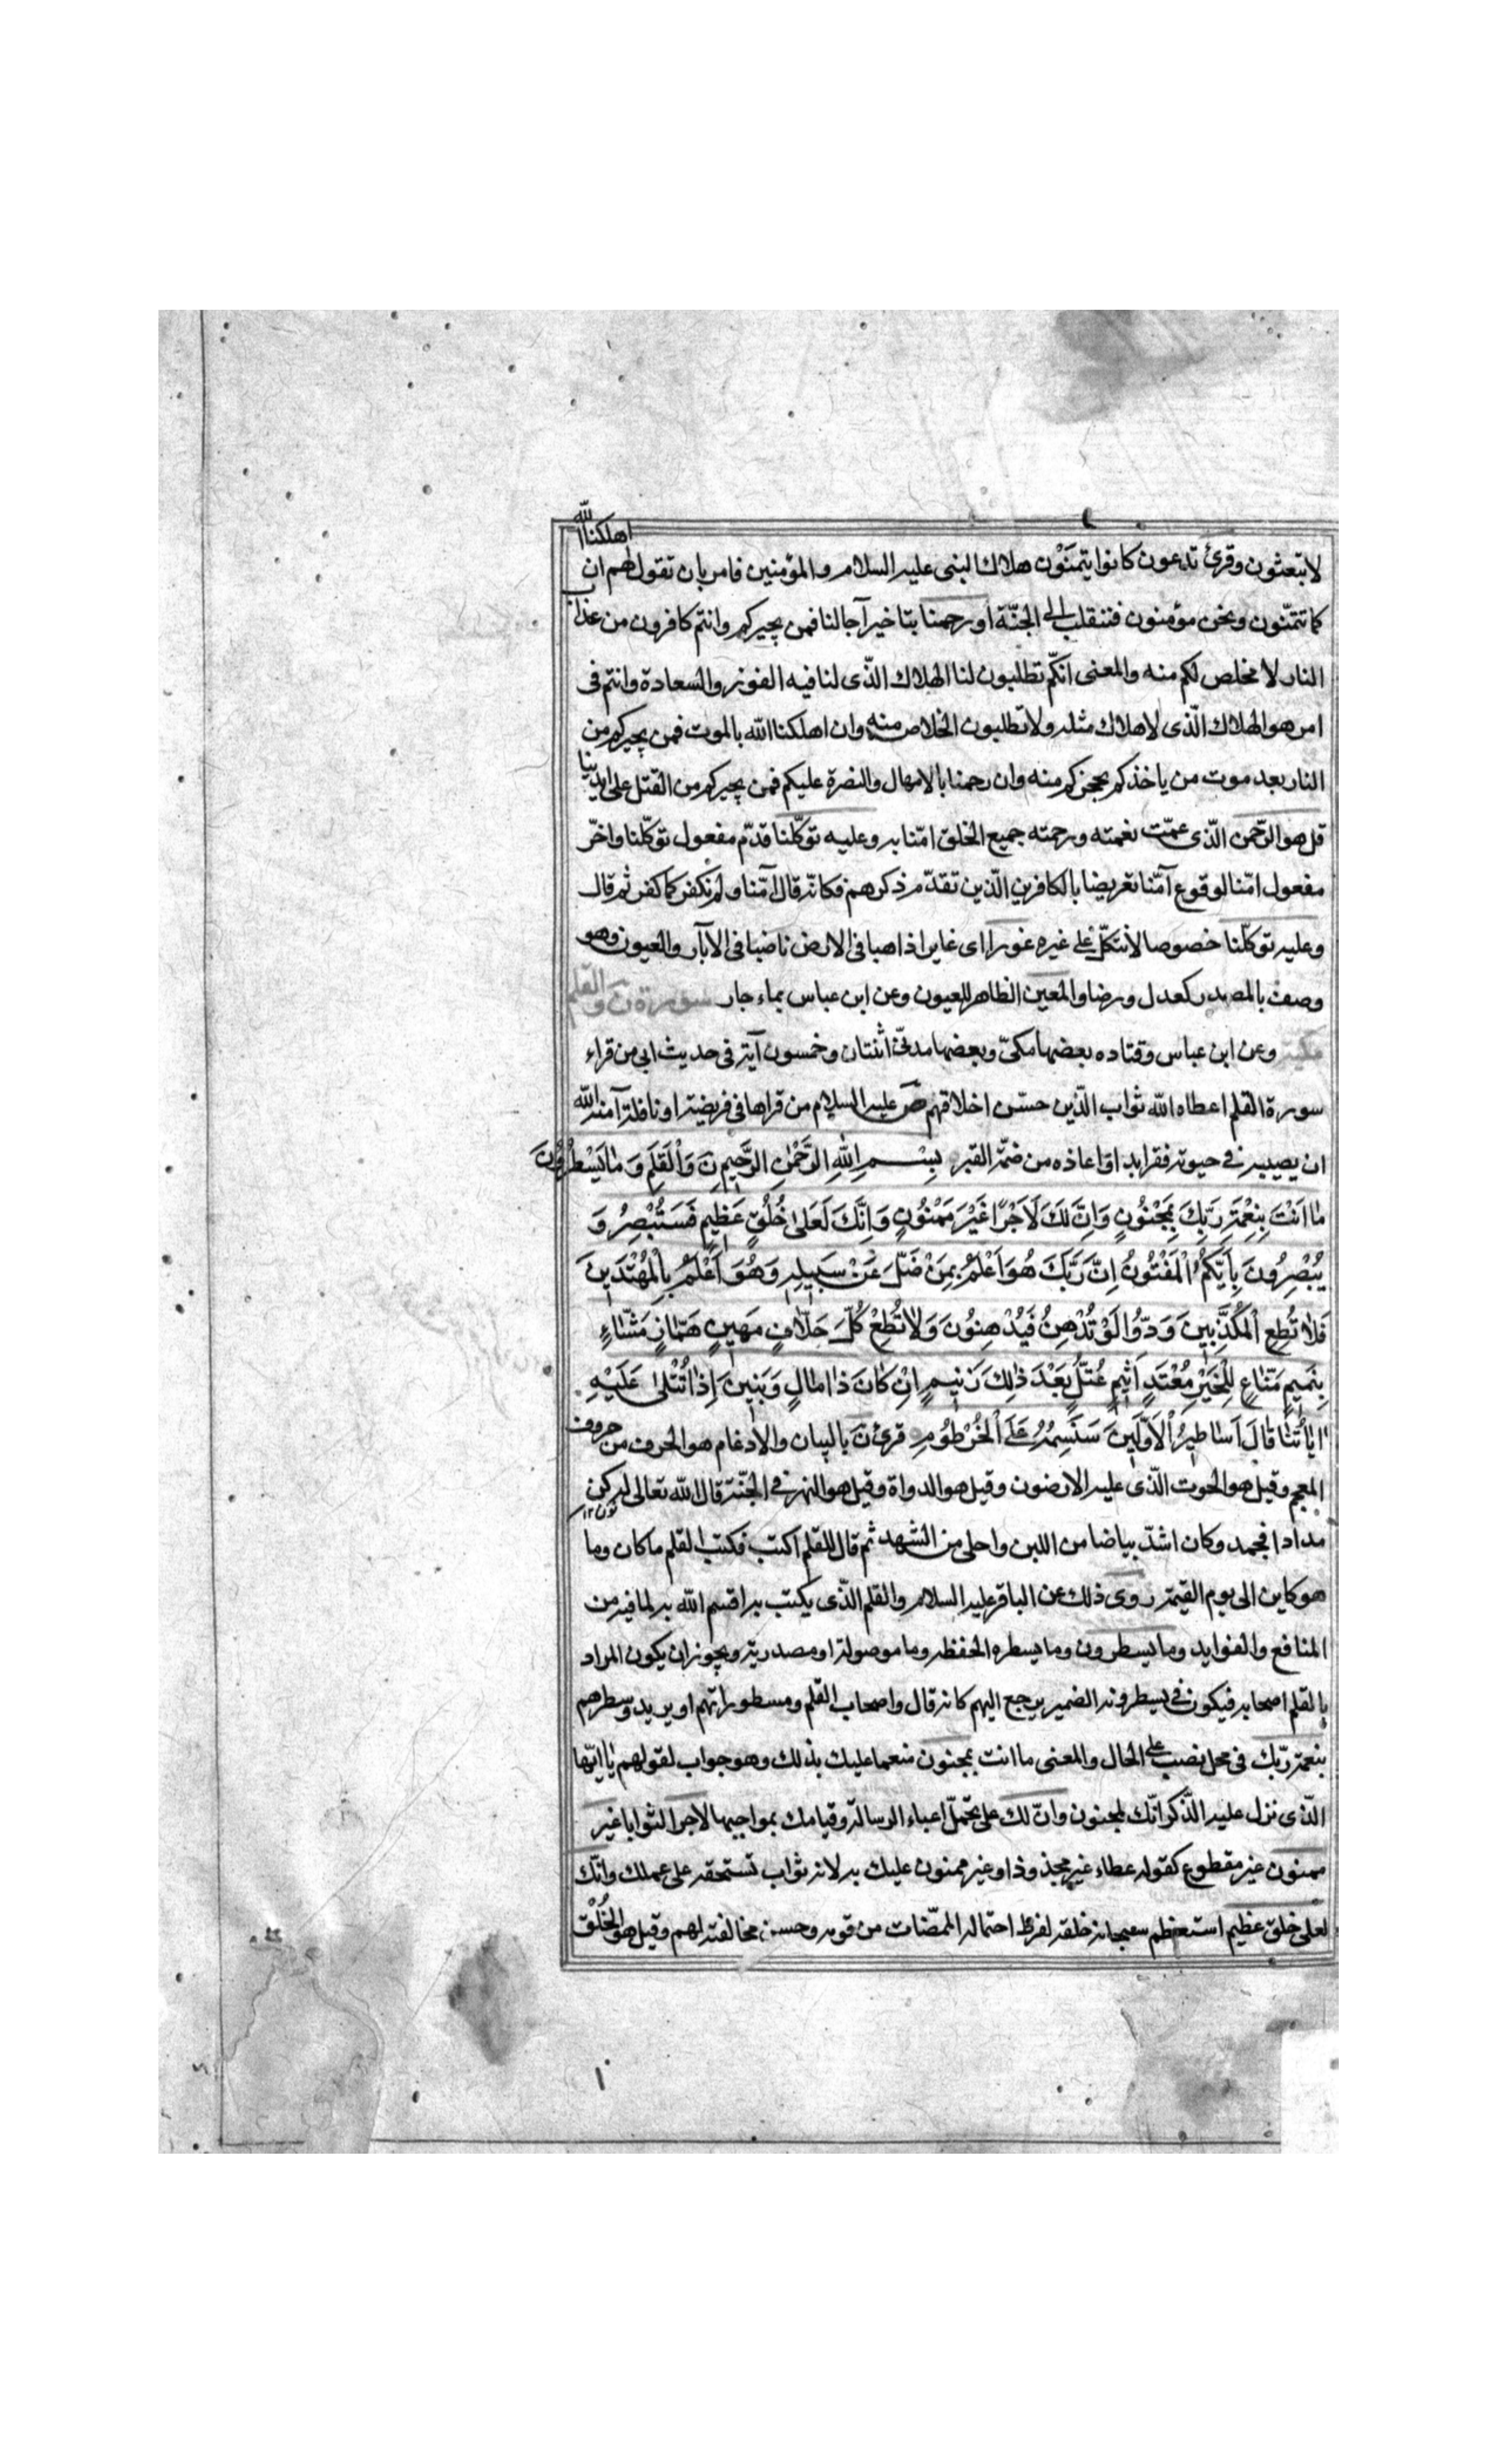 لا تبعثون وقرئ تدعون كانوا يتمنّون هلاك النبى عليه السلام والمؤمنين فامر بان تقول لهم ان اهلكنا الله
كما تتمنّون ونحن مؤمنون فننقلب الى الجنّة او رحمنا بتاخير آجالنا فمن يجيركم وانتم كافرون من عذاب
النار لا مخلص لكم منه والمعنى انكّم تطلبون لنا الهلاك الّذى لنا فيه الفوز والسعادة وانتم فى
امر هو الهلاك الّذى لا هلاك مثله ولا تطلبون الخلاص منه وان اهلكنا الله بالموت فمن يجيركم من
النار بعد موت من ياخذ كم بحجزكم منه وان رحمنا بالامهال والنصرة عليكم فمن يجيركم من القتل على ايدينا
قل هو الرّحمن الّذى عمّت نعمته ورحمته جميع الخلق امّنا به وعليه توكّلنا قدّم مفعول توكّلنا واخّر
مفعول امّنا لوقوع آمّنا تعريضا بالكافرين الّذين تقدّم ذكرهم فكانّه قال آمّنا ولم نكفر كما كفر ثم قال
وعليه توكّلنا خصوصا لا نتكّل على غيره غورا اى غايرا ذاهبا فى الارض ناضبا فى الآبار والعيون وهو
وصف بالمصدر كعدل ورضا والمعين الظاهر للعيون وعن ابن عباس بماء جار سورة ن والقلم
مكية وعن ابن عباس وقتاده بعضها مكىّ وبعضها مدنىّ اثنتان وخمسون آية فى حديث ابى من قراء
سورة القلم اعطاه الله ثواب الّذين حسّن اخلاقهم ص عليه السلام من قراها فى فريضة او نافلة آمنه الله
ان يصيبه فى حيوته فقر ابدا واعاذه من ضمّة القبر بِسْمِ اللهِ الرَّحْمٰنِ الرَّحِيمِ نَ وَالْقَلَمِ وَمَا يَسْطُرُونَ
مَا اَنْتَ بِنِعْمَةِ رَبِّكَ بِمَجْنُونٍ وَاِنَّ لَكَ لَاَجْرًا غَيْرَ مَمْنُونٍ وَاِنَّكَ لَعَلىٰ خُلُقٍ عَظِيمٍ فَسَتُبْصِرُ وَ
يُبْصِرُونَ بِاَيِّكُمُ الْمَفْتُونُ اِنَّ رَبَّكَ هُوَ اَعْلَمُ بِمَنْ ضَلَّ عَنْ سَبِيلِهِ وَهُوَ اَعْلَمُ بِالْمُهْتَدِينَ
فَلَا تُطِعِ الْمُكَذِّبِينَ وَدُّوا لَوْ تُدْهِنُ فَيُدْهِنُونَ وَلَا تُطِعْ كُلَّ حَلَّافٍ مَهِينٍ هَمَّازٍ مَشَّاءٍ
بِنَمِيمٍ مَنَّاعٍ لِلْخَيْرِ مُعْتَدٍ اَثِيمٍ عُتُلٍّ بَعْدَ ذٰلِكَ زَنِيمٍ اِنْ كَانَ ذَا مَالٍ وَبَنِينَ اِذَا تُتْلىٰ عَلَيْهِ
ايَاتُنَا قَالَ اَسَاطِيرُ الْاَوَّلِينَ سَنَسِمُهُ عَلَى الْخُرْطُومِ قرئ ن بالبيان والادغام هو الحرف من حروف
المعجم وقيل هو الحوت الّذى عليه الارضون وقيل هو الدواة وقيل هو النهر فى الجنّة قال الله تعالى له كن
مدادا فجمد وكان اشدّ بياضا من اللبن واحلى من الشهد ثم قال للقلم اكتب فكتب القلم ما كان وما
هو كاين الى يوم القيمة روى ذلك عن الباقر عليه السلام والقلم الّذى يكتب به اقسم الله به لما فيه من
المنافع والفوايد وما يسطرون وما يسطره الحفظة وما موصولة او مصدرية ويجوز ان يكون المراد
بالقلم اصحابه فيكون فى يسطرونه الضمير يرجع اليهم كانه قال واصحاب القلم ومسطوراتهم او يريد وسطرهم
بنعمة ربّك فى محل نصب على الحال والمعنى ما انت بمجنون منعما عليك بذلك وهو جواب لقولهم يا ايّها
الّذى نزل عليه الذّكر انّك لمجنون وانّ لك على تحمّل اعباء الرسالة وقيامك بمواجبها لاجرا لثوابا غير
ممنون غير مقطوع كقوله عطاء غير مجذوذ او غير ممنون عليك به لانه ثواب تستحقه على عملك وانّك
لعلى خلق عظيم استعظم سبحانه خلقه لفرط احتماله الممضّات من قومه وحسن مخالفته لهم وقيل هو الخُلُق